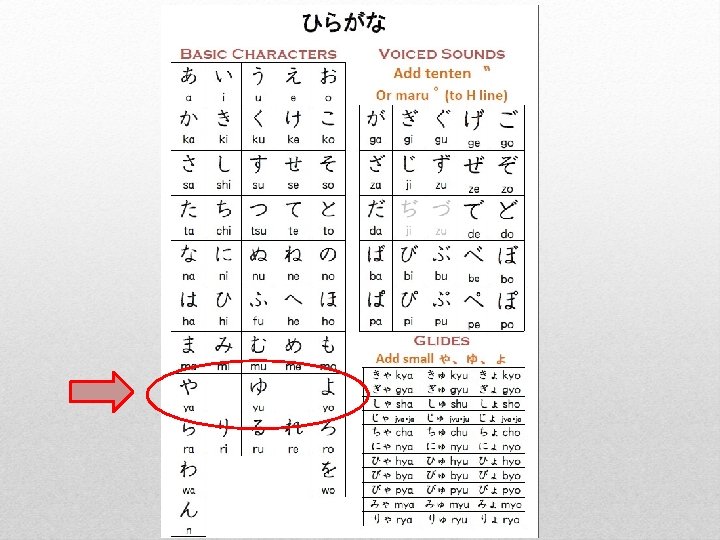 ひらがな
BASIC CHARACTERS
あ い う え お
a i u e o
か き く け こ
ka ki ku ke ko
さ し す せ そ
sa shi su se so
た ち つ て と
ta chi tsu te to
な に ぬ ね の
na ni nu ne no
は ひ ふ へ ほ
ha hi fu he ho
ま み む め も
ma mi mu me mo
や ゆ よ
ya yu yo
ら り る れ ろ
ra ri ru re ro
わ を
wa wo
ん
n
VOICED SOUNDS
Add tenten ゛
Or maru ゜ (to H line)
が ぎ ぐ げ ご
ga gi gu ge go
ざ じ ず ぜ ぞ
za ji zu ze zo
だ ぢ づ で ど
da ji zu de do
ば び ぶ べ ぼ
ba bi bu be bo
ぱ ぴ ぷ ぺ ぽ
pa pi pu pe po
GLIDES
Add small ゃ、ゅ、ょ
きゃ kya きゅ kyu きょ kyo
ぎゃ gya ぎゅ gyu ぎょ gyo
しゃ sha しゅ shu しょ sho
じゃ jya・ja じゅ jyu・ju じょ jyo・jo
ちゃ cha ちゅ chu ちょ cho
にゃ nya にゅ nyu にょ nyo
ひゃ hya ひゅ hyu ひょ hyo
びゃ bya びゅ byu びょ byo
ぴゃ pya ぴゅ pyu ぴょ pyo
みゃ mya みゅ myu みょ myo
りゃ rya りゅ ryu りょ ryo